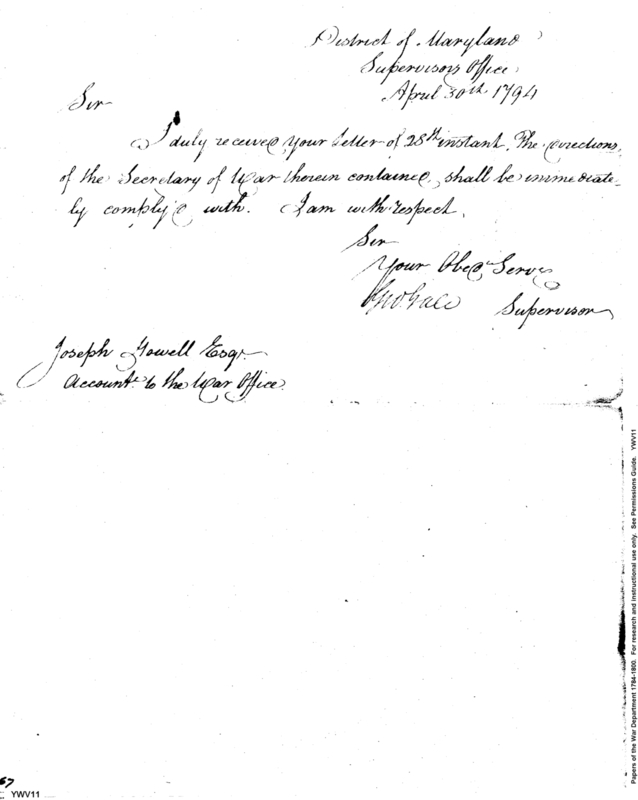 District of Maryland
Supervisors Office
April 30th 1794
Sir
I duly received your Letter of 28th instant, The directions,
of the Secretary of War therein contained, shall be immediate-
ly comply'd with. I am with respect,
Sir
Your Obed Serv
Geo Gale Supervisor
Joseph Howell Esqr
Accountt to the War Office
Papers of the War Department 1784-1800. For research and instructional use only. See Permissions Guide. YWV11
67
YWV11